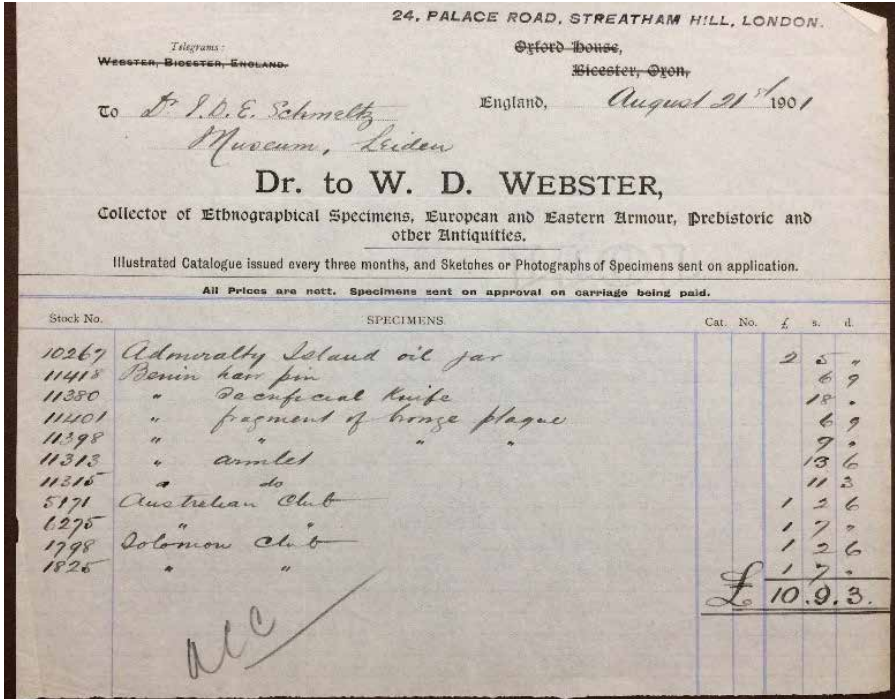 24, PALACE ROAD, STREATHAM HILL, LONDON.
Telegrams: Oxford House,
WEBSTER, BICESTER, ENGLAND. Bicester, Oxon,
England, August 21st 1901
To Dr J. D. E. Schmeltz
Museum, Leiden
Dr. to W. D. WEBSTER,
Collector of Ethnographical Specimens, European and Eastern Armour, Prehistoric and
other Antiquities.
Illustrated Catalogue issued every three months, and Sketches or Photographs of Specimens sent on application.
All Prices are nett. Specimens sent on approval on carriage being paid.
Stock No. SPECIMENS. Cat. No. £ s. d.
10267 Admiralty Island oil jar 2 5 "
11418 Benin hair pin 6 9
11380 " Sacrificial Knife 18 "
11401 " fragment of bronze plaque 6 9
11398 " " " " 9 "
11313 " armlet 13 6
11315 " do 11 3
5171 Australian Club 1 2 6
6275 " " 1 7 "
1798 Solomon Club 1 2 6
1825 " " 1 7 "
£ 10.9.3.
acc